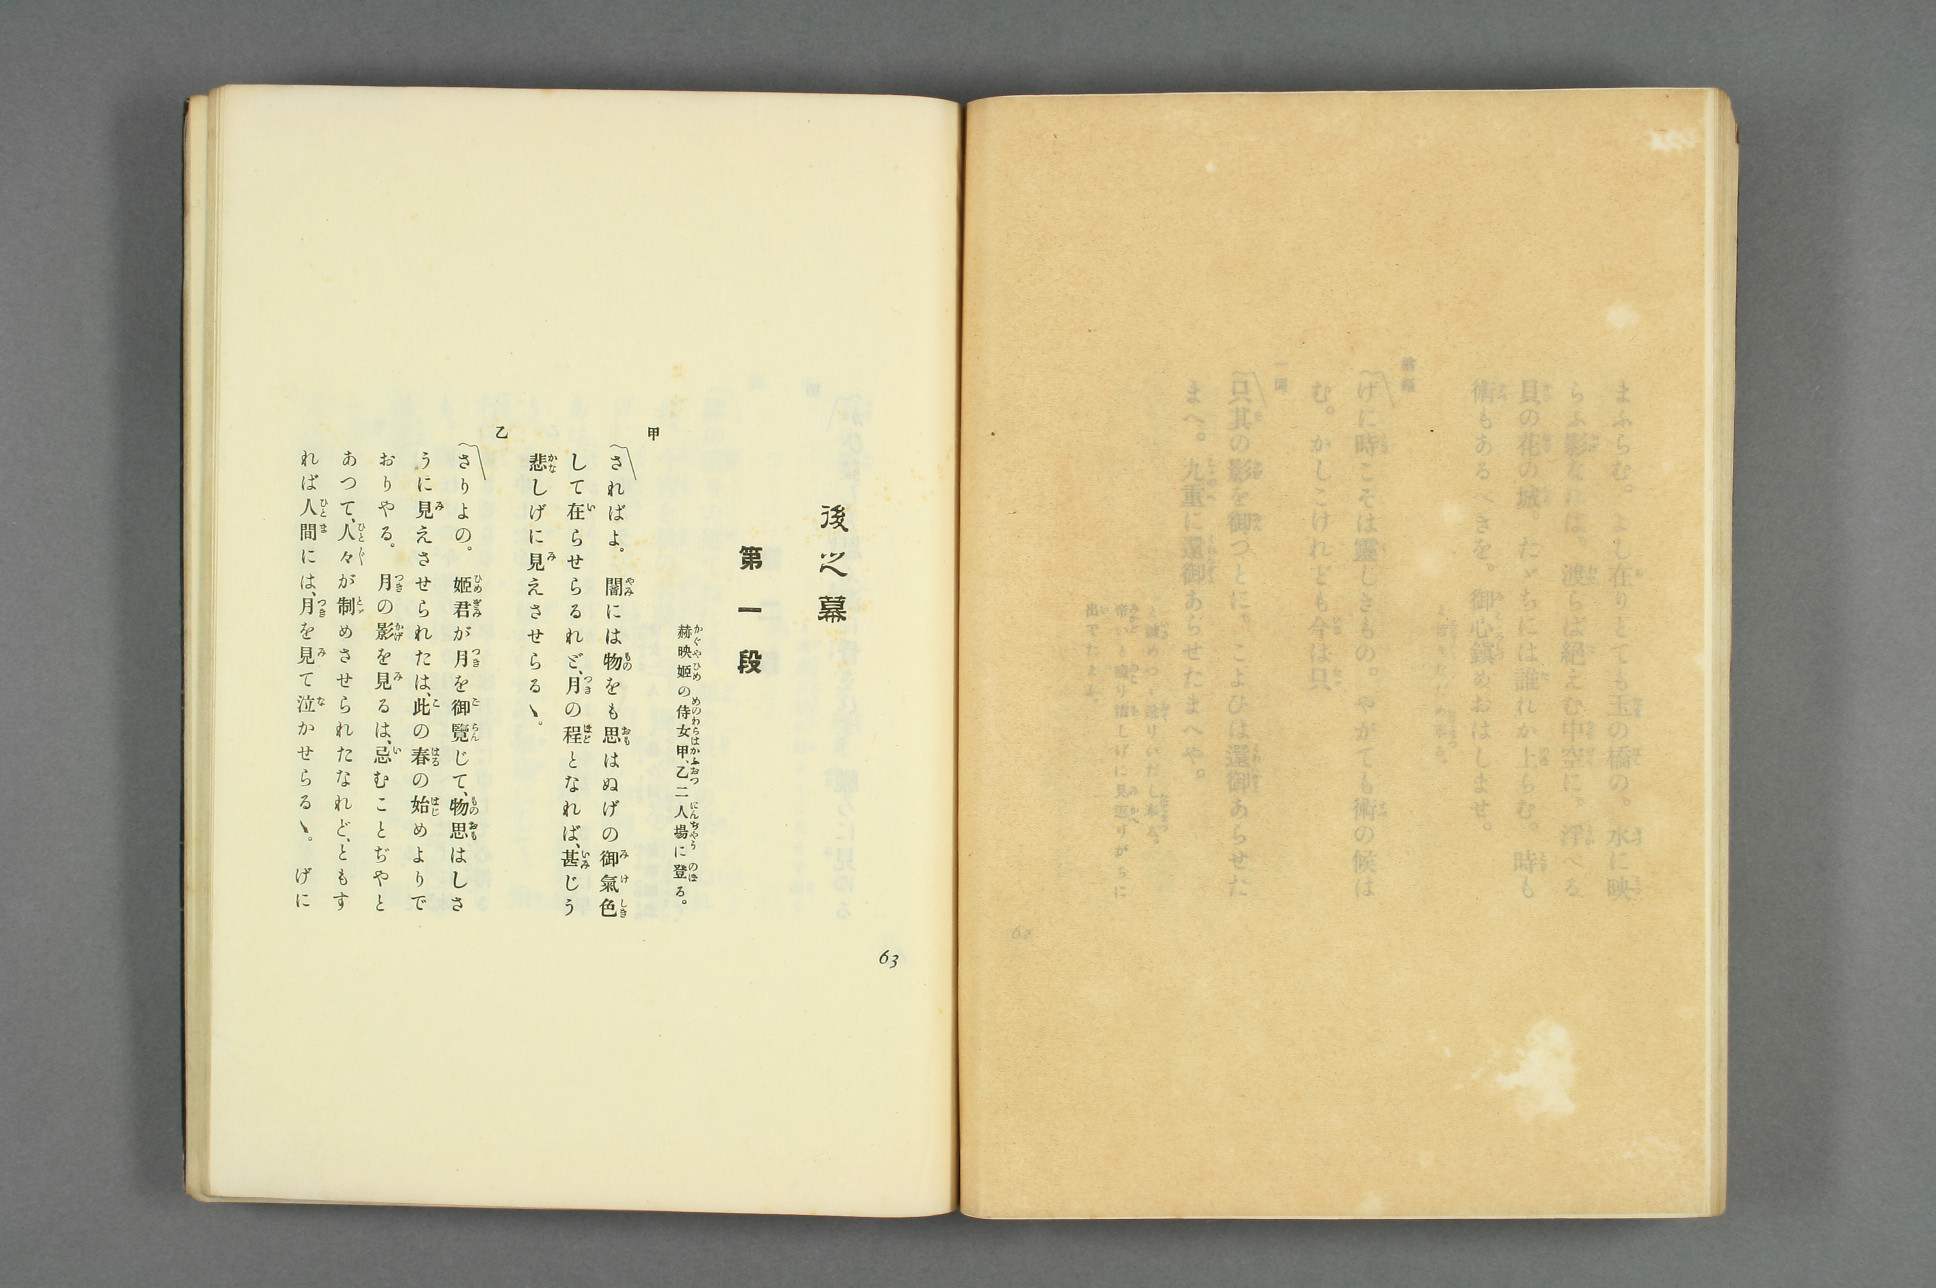 まふらむ。よし在りとても玉の橋の。水に映
らふ影なれば。渡らば絕えむ中空に。浮べる
貝の花の城。たゞちには誰れか上らむ。時も
術もあるべきを。御心鎭めおはしませ。
げに時こそは靈しきもの。やがても術の候は
む。かしこけれども今は只
一同
只其の影を御つとに。こよひは還御あらせた
まへ。九重に還御あらせたまへや。
出でたまふ。
62
後之幕
第一段
赫映姬の侍女甲、乙二人場に登る。
甲
さればよ。闇には物をも思はぬげの御氣色
して在らせらるれど、月の程となれば、甚じう
悲しげに見えさせらるゝ。
乙
さりよの。姬君が月を御覽じて、物思はしさ
うに見えさせられたは、此の春の始めよりで
おりやる。月の影を見るは、忌むことぢやと
あつて、人々が制めさせられたなれど、ともす
れば人間には、月を見て泣かせらるゝ。げに
63